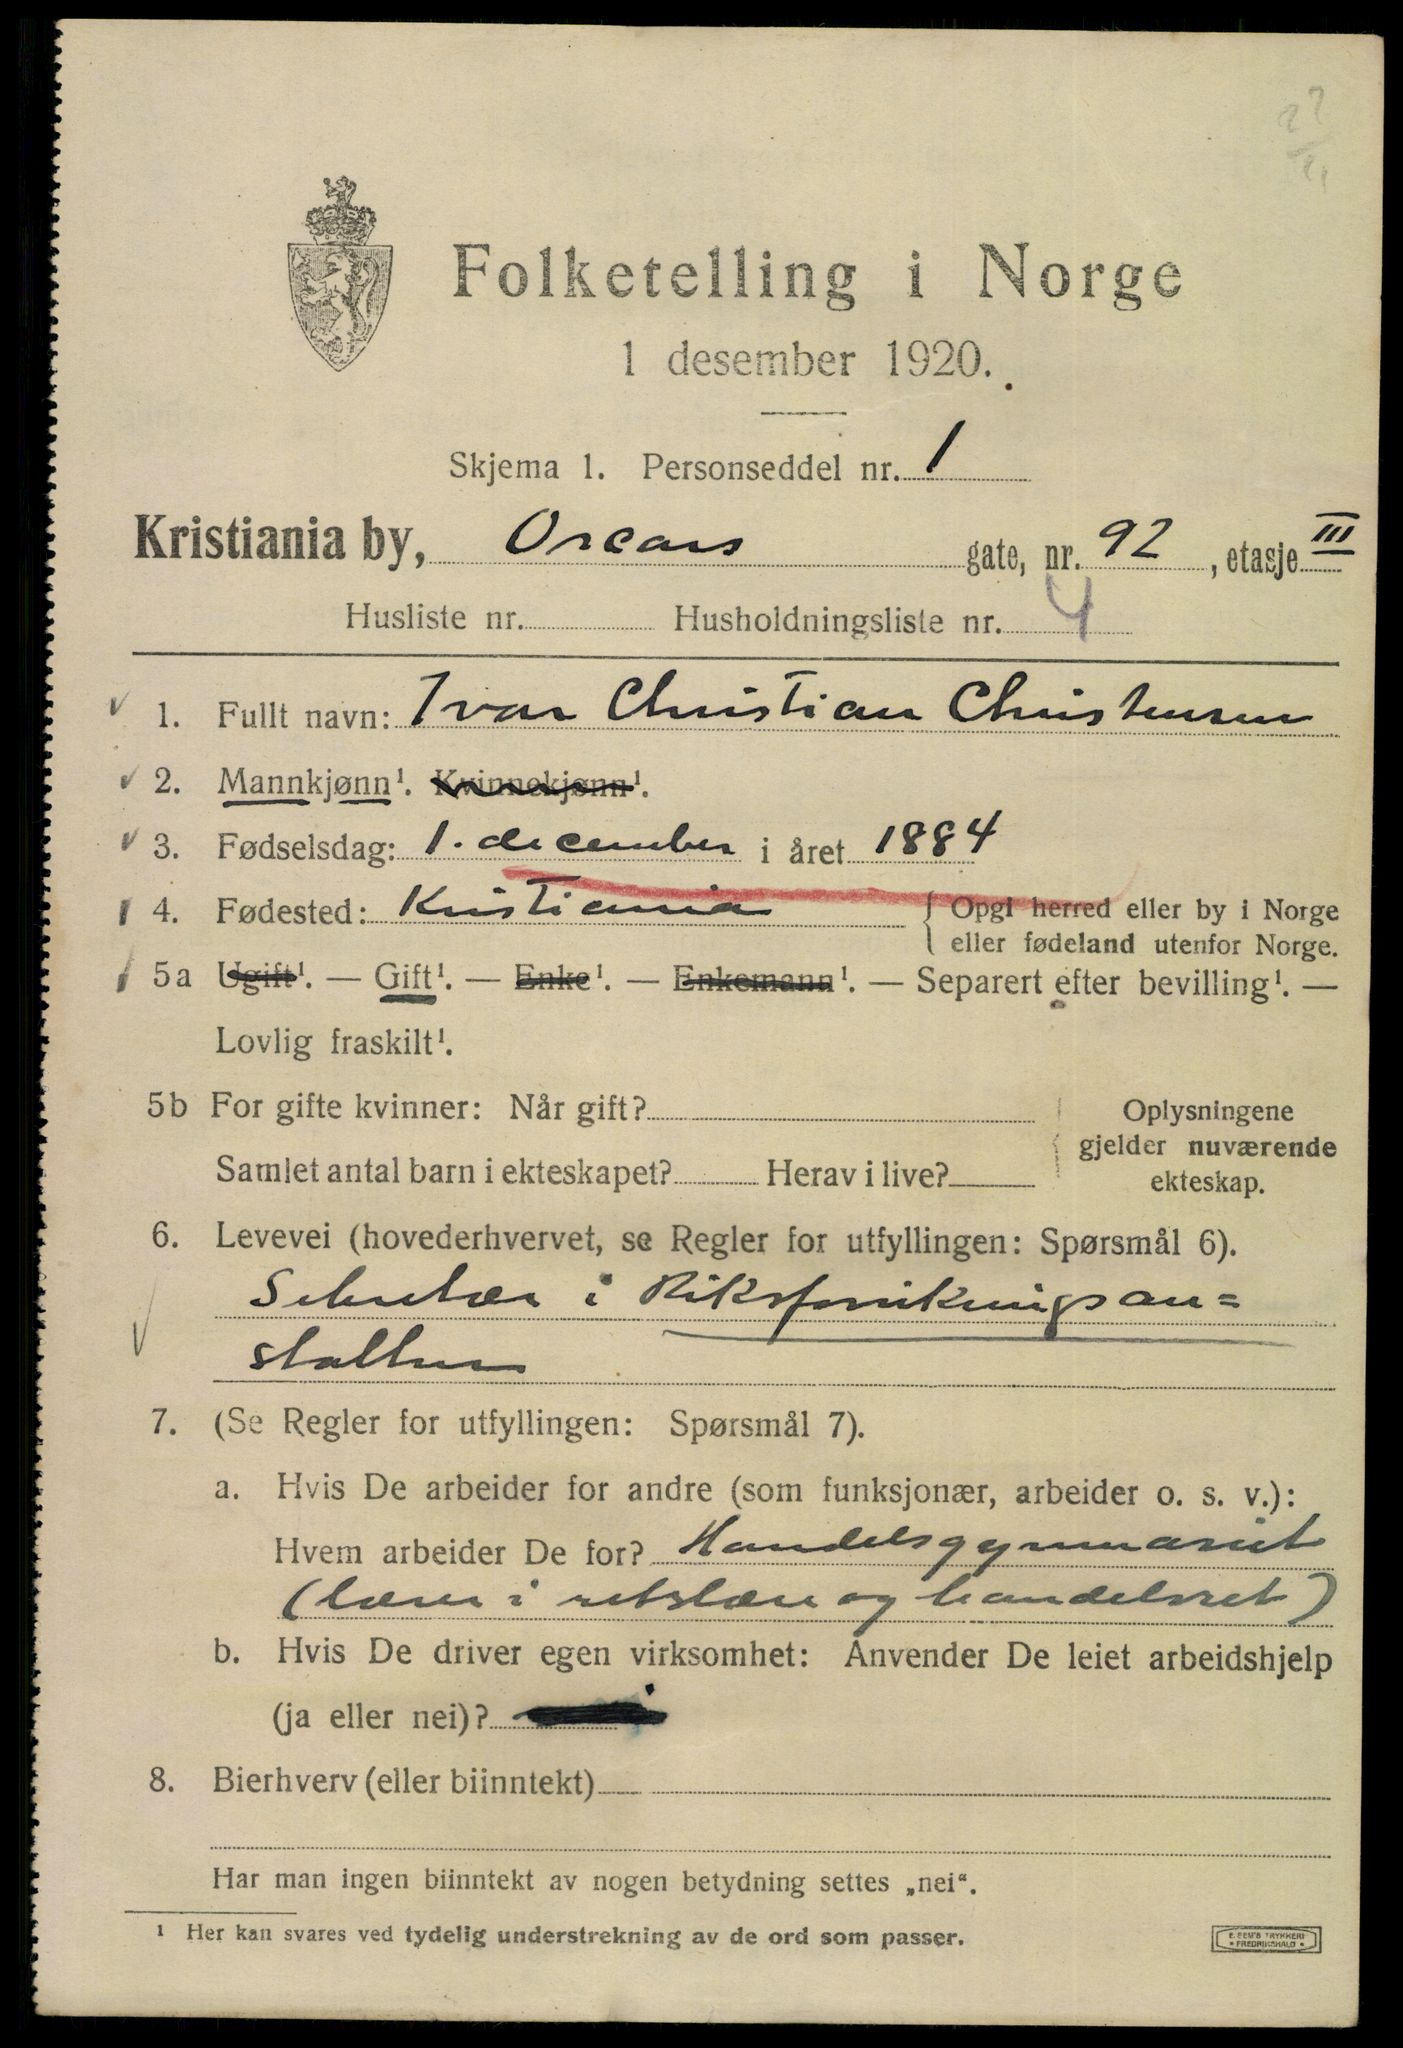 Folketelling i Norge
1 desember 1920.
Skjema 1. Personseddel nr. 1
Kristiania by, Oscars gate, nr. 92, etasje III
Husliste nr. Husholdningsliste nr. 4
1. Fullt navn: Ivar Christian Christensen
2. Mannkjønn¹. Kvinnekjønn¹.
3. Fødselsdag: 1. december i året 1884
4. Fødested: Kristiania { Opgi herred eller by i Norge
eller fødeland utenfor Norge.
5a Ugift¹. — Gift¹. — Enke¹. — Enkemann¹. — Separert efter bevilling¹. —
Lovlig fraskilt¹.
5b For gifte kvinner: Når gift? Oplysningene
gjelder nuværende
Samlet antal barn i ekteskapet? Herav i live? ekteskap.
6. Levevei (hovederhvervet, se Regler for utfyllingen: Spørsmål 6).
Sekretær i Riksforsikringsan=
stalten
7. (Se Regler for utfyllingen: Spørsmål 7).
a. Hvis De arbeider for andre (som funksjonær, arbeider o. s. v.):
Hvem arbeider De for? Handelsgymnasiet
(lærer i retslære og handelsret)
b. Hvis De driver egen virksomhet: Anvender De leiet arbeidshjelp
(ja eller nei)?
8. Bierhverv (eller biinntekt)
Har man ingen biinntekt av nogen betydning settes „nei“.
¹ Her kan svares ved tydelig understrekning av de ord som passer.
E. SEM'S TRYKKERI
• FREDRIKSHALD •